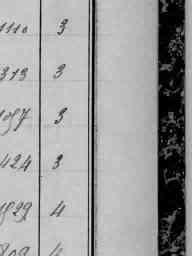 1110 3
313 3
1097 3
424 3
1829 4